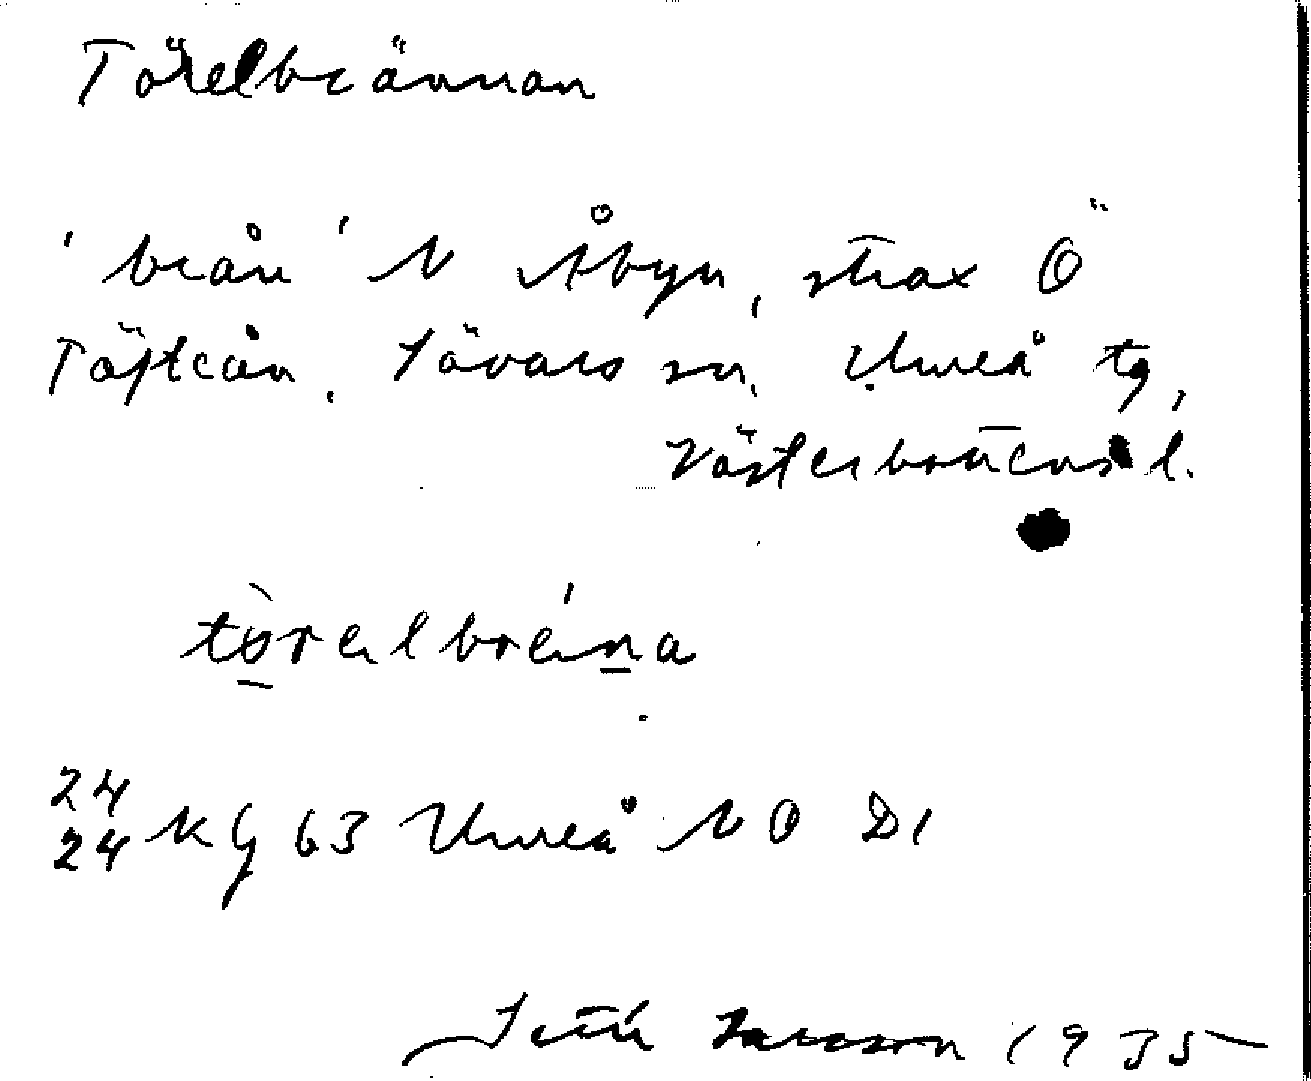 Törelbrännan
'brån' N Åbyn, strax Ö
Täfteån. Sävars sn, Umeå tg,
Västerbottens l.
törelbréna
24
24 Kg 63 Umeå NO D1
Larsson 1935